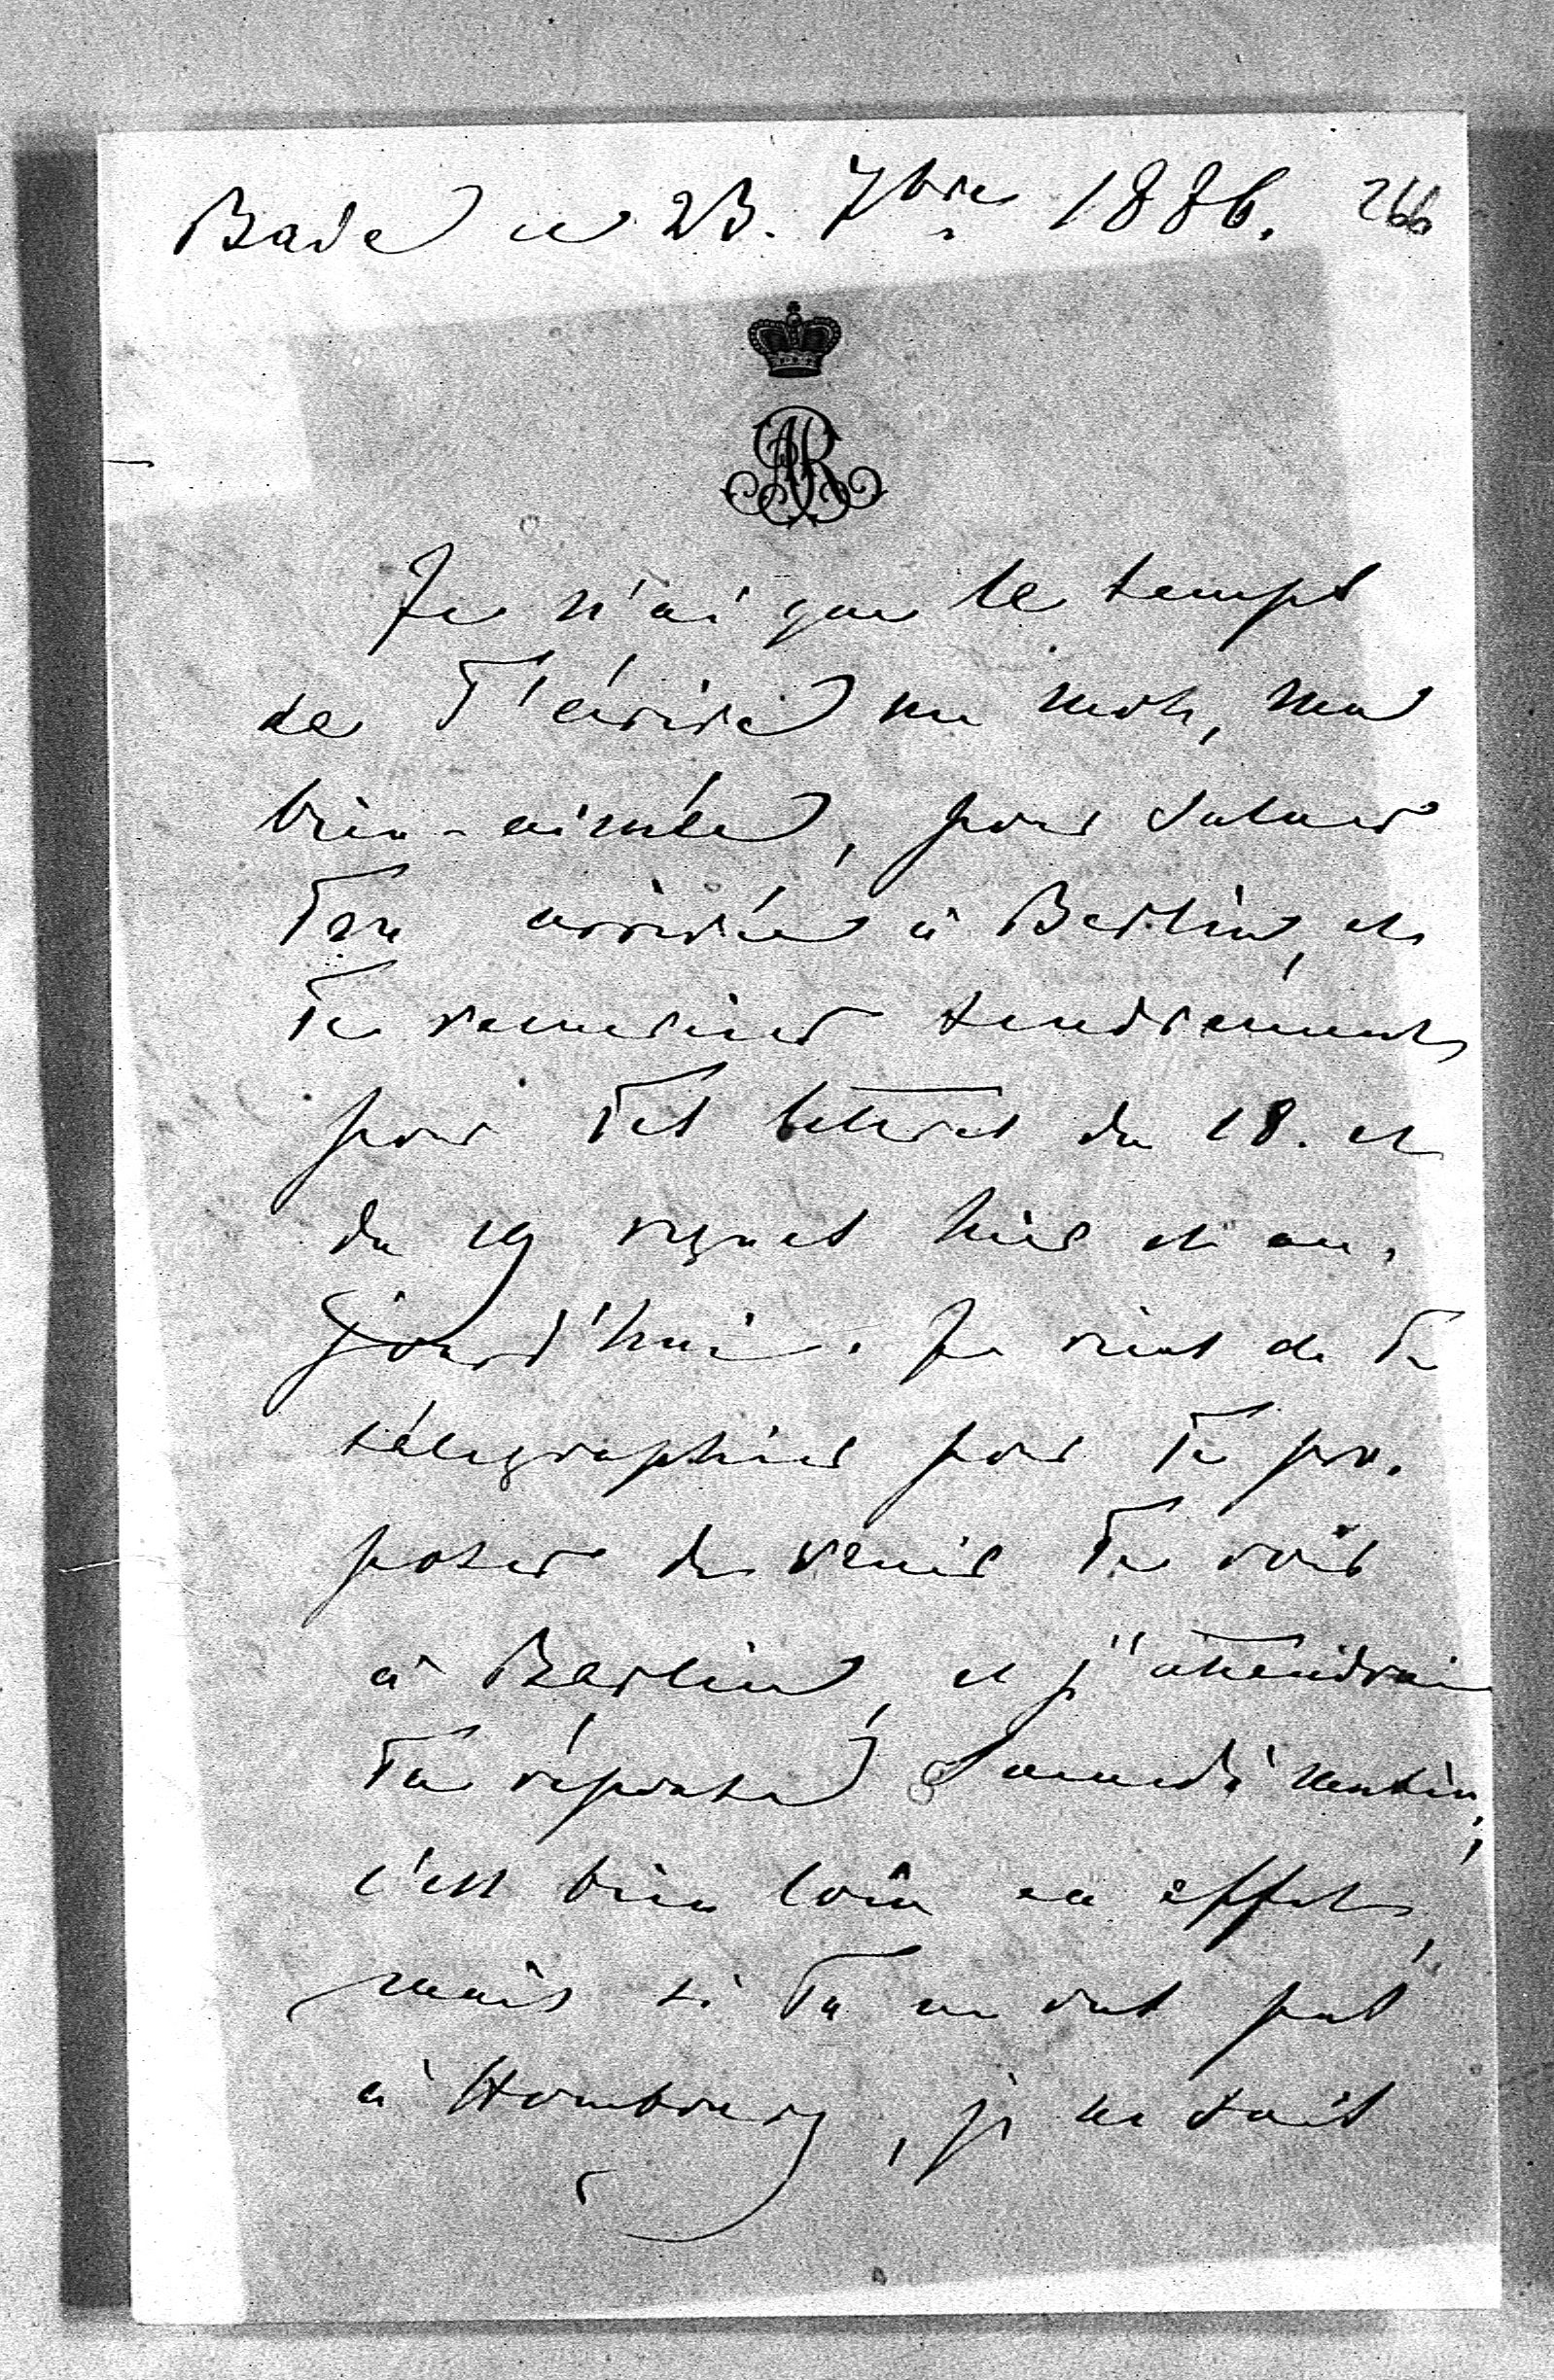 Bade ce 23. 7bre 1886. 266
AR
Je n'ai que le temps
de T'écrire un mot, ma
bien-aimée, pour saluer
Ton arrivée à Berlin, et
Te remercier tendrement
pour Tes lettres du 18. et
du 19 reçues hier et au-
jourd'hui. Je viens de Te
télegraphier pour Te pro-
poser de venir Te voir
à Berlin, et j'attendrai
Ta réponse Samedi matin;
c'est bien loin en effet,
mais si Tu ne vas pas
à Hombourg, je ne sais